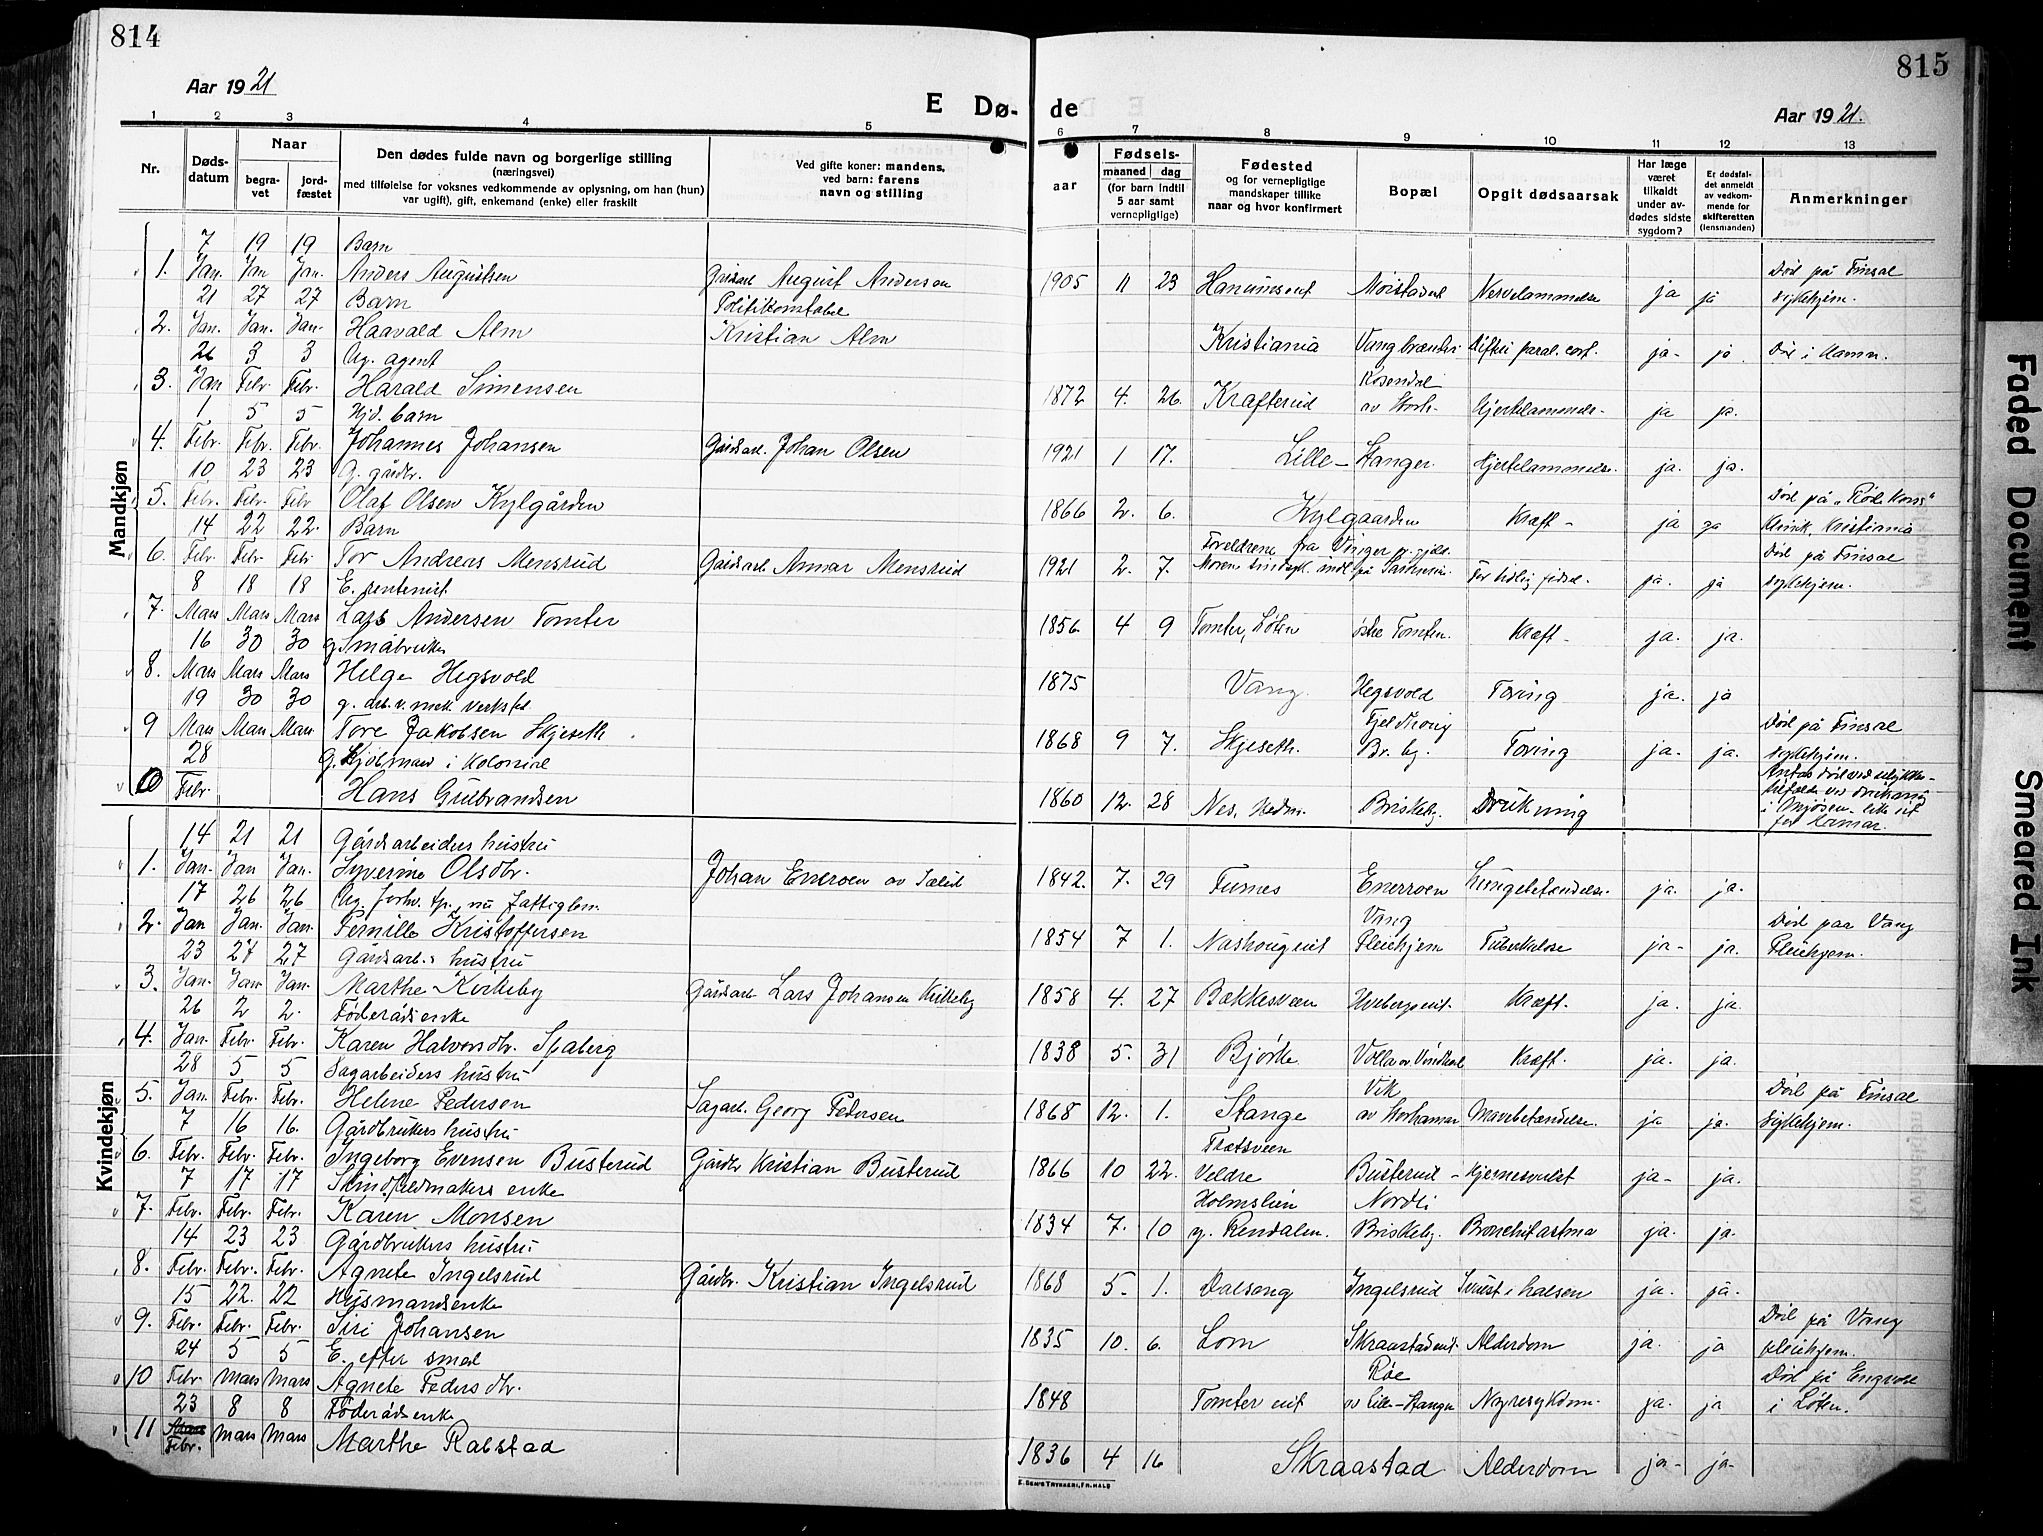 814
815
Aar 1921
E Dø-
de
Aar 1921.
1 2 3 4 5 6 7 8 9 10 11 12 13
Nr.
Døds-
datum
Naar
begra-
vet
jord-
fæstet
Den dødes fulde navn og borgerlige stilling
(næringsvei)
med tilføielse for voksnes vedkommende av oplysning, om han (hun)
var ugift), gift, enkemand (enke) eller fraskilt
Ved gifte koner: mandens,
ved barn: farens
navn og stilling
Fødsels-
aar
maaned dag
(for barn indtil
5 aar samt
vernepligtige)
Fødested
og for vernepligtige
mandskaper tillike
naar og hvor konfirmert
Bopæl
Opgit dødsaarsak
Har læge
været
tilkaldt
under av-
dødes sidste
sygdom?
Er dødsfal-
det anmeldt
av vedkom-
mende for
skifteretten
(lensmanden)
Anmerkninger
Mandkjøn
7 19 19 Barn
1. Jan. Jan Jan. Anders Augustsen August Andersen 1905 11 23 Nervelammelse ja ja Død på Finsal
sykehjem.
21 27 27 Barn Politikonstabel
2. Jan. Jan. Jan. Haavald Alm Kristian Alm Kristiania ja- ja Død i Hamar.
26 3 3 Ug. agent
3. Jan Febr. Febr. Harald Simensen 1872 4. 26. Krafterud Rosendal
av Storh. Hjertelammelse- ja ja.
1 5 5 barn
4. Febr. Febr. Febr. Johannes Johansen Gårdsarb. Johan Olsen 1921 1 17. Lille-Stanger. Hjertelammelse. ja. ja.
10 23 23 G. gårdbr.
5. Febr. Febr. Febr Olaf Olsen Kylgården 1866 2. 6. Kylgaarden Kræft- ja Død på "Røde Kors"
klinik, Kristiania
14 22 22. Barn
6. Febr. Febr. Febr Tor Andreas Mensrud Gårdsarb. Annar Mensrud 1921 2. 7. Foreldrene fra Vinger
For tidlig fødsel- ja. ja Død på Finsal
sykehjem.
8 18 18 E. rentenist
7. Mars Mars Mars Lars Andersen Tomter 1856 4 9 Tomter, Løten østre Tomter. Kræft- ja. ja.
16 30 30 g. Småbruker
8. Mars Mars Mars Helge Hegsvold 1875 Vang. Hegsvold Tæring ja. ja
19 30 30 g. arb. v. mek. verksted
9 Mars Mars Mars Tore Jakobsen Skjeseth 1868 9 7. Skjeseth. Br. by. Tæring ja- ja. Død på Finsal
sykehjem.
28 G. Kjøbmand i Kolonial
10 Febr. Hans Gulbrandsen 1860 12. 28 Nes, Hedm. Briskeby. Drukning
i Mjøsen
for Hamar.
Kvindekjøn
14 21 21 Gårdsarbeiders hustru
1. Jan. Jan Jan. Syverine Olsdtr. Johan Enerroen av Sælid 1842. 7. 29 Furnes Enerroen Lungebetændelse. ja. ja.
17 26 26 Ug. forhv. tj., nu fattiglem.
2. Jan Jan. Jan. Pernille Kristoffersen 1854 7 1. Vang
Pleiehjem Tuberkulose ja- ja. Død paa Vang
Pleiehjem.
23 27 27 Gårdsarb.s hustru
3. Jan. Jan. Jan. Marthe Kirkeby Gårdsarb. Lars Johansen Kirkeby 1858 4. 27 Bækkesveen Kræft. ja. ja.
26 2 2. Føderådsenke
4. Jan. Febr. Febr. Karen Halvorsdtr. Spaberg 1838 5. 31 Bjørke Kræft. ja. ja.
28 5 5 Sagarbeiders hustru
5. Jan. Febr. Febr. Helene Pedersen Sagarb. Georg Pedersen 1868 12. 1. Stange Vik
av Storhamar Mavebetændelse. ja ja. Død på Finsal
sykehjem.
7 16 16. Gårdbrukers hustru
6. Febr. Febr. Febr. Ingeborg Evensen Busterud Gårdbr Kristian Busterud 1866 10 22. Veldre Busterud- Hjernesvulst ja- ja.
7 17 17 Skindfeldmakers enke
7. Febr. Febr. Febr. Karen Monsen 1834 7. 10 Holmslien
y. Rendalen. Nordli
Briskeby. Bronchitastma ja. ja.
14 23 23 Gårdbrukers hustru
8. Febr. Febr. Febr. Agnete Ingelsrud Gårdbr. Kristian Ingelsrud 1868 5- 1. Dalseng Ingelsrud Svulst i halsen ja. ja.
15 22. 22 Husmandsenke
9. Febr. Febr. Febr. Siri Johansen 1835 10. 6. Lom Skraastadeit. Alderdom ja. ja Død på Vang
pleiehjem.
24 5 5 E. efter smed
10 Febr Mars Mars Agnete Pedersdtr. 1848 Tomter eiet Røe
av Lille-Stanger Nyresykdom. ja. ja Død på
i Løten.
23 8 8 Føderådsenke
11 Febr. Mars Mars Marthe Rabstad 1836 4 16 Skraastad Alderdom ja- ja-
E. SEM'S TRYKKERI, FR.HALD
Faded Document
Smeared Ink